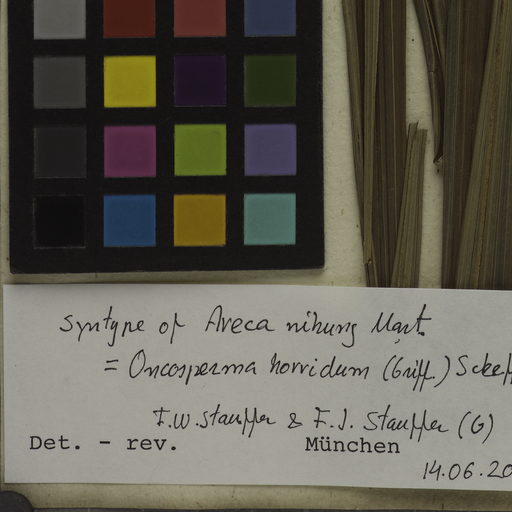 Syntype of Areca nibung Mart.
= Oncosperma horridum (Griff.) Scheff
F.W. Stauffer & F.J. Stauffer (G)
Det. - rev. München
14.06.20